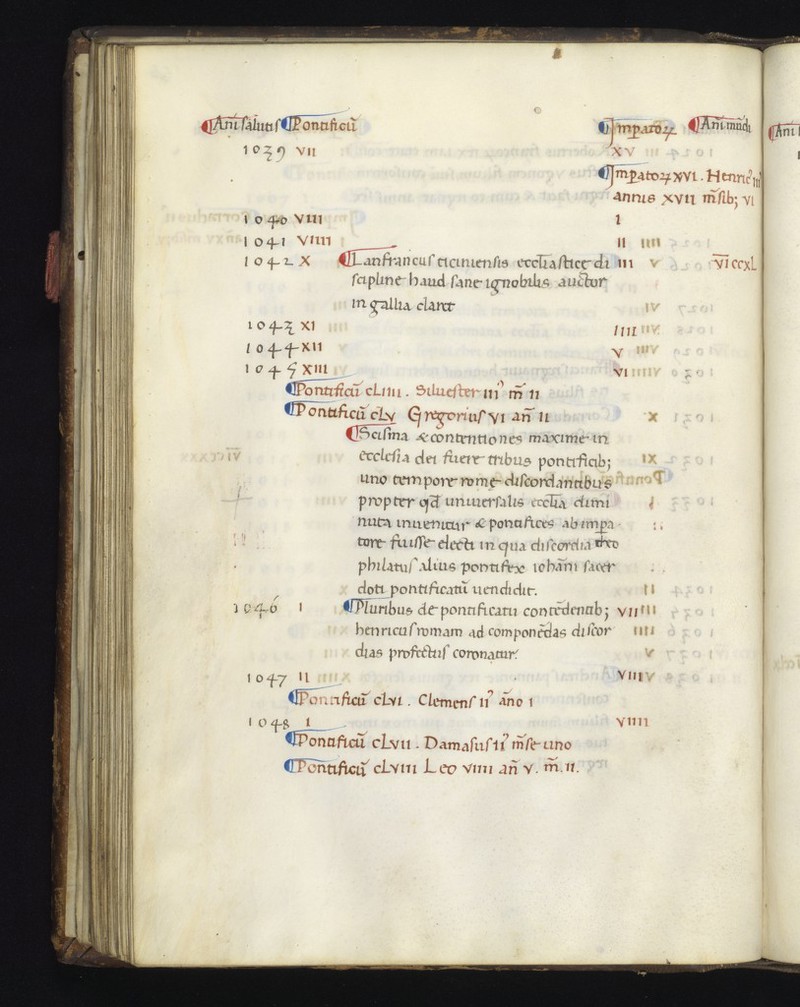 ¶Ani salutis ¶Pontificũ ¶Impatoꝝ ¶Ani mũdi
1039 VII XV
¶Impatoꝝ XVI. Henric⁹ III
annis XVII m̃sib; VI
1040 VIII I
1041 VIIII II
1042 X ¶Lanfrancus ticiniensis eccl̃iasticę di III VI ccxL
sciplinę haud sane ignobilis auctor
in gallia claret
1043 XI IIII
1044 XII V
1045 XIII VI
¶Pontificũ cLIIII. Siluester III⁹ m̃ II
¶Pontificũ cLV Gregorius VI añ II
¶Scisma & contentiones maxime in
ecclesia dei fuere tribus pontificib;
uno tempore rome discordantibus
propter qd̃ uniuersalis eccl̃ia dimi
nuta inuenitur & pontifices ab impa
tore fuisse electi in qua discordia theo
philatus alius pontifex ioh̃ani sacer
doti pontificatũ uendidit.
1046 I ¶Pluribus de pontificatu contẽdentib; VII
henricus romam ad componẽdas discor
dias profectus coronatur.
1047 II VIII
¶Pontificũ cLVI. Clemens II⁹ ãno I
1048 I VIIII
¶Pontificũ cLVII. Damasus II⁹ m̃se uno
¶Pontificũ cLVIII Leo VIIII añ V. m̃. II.